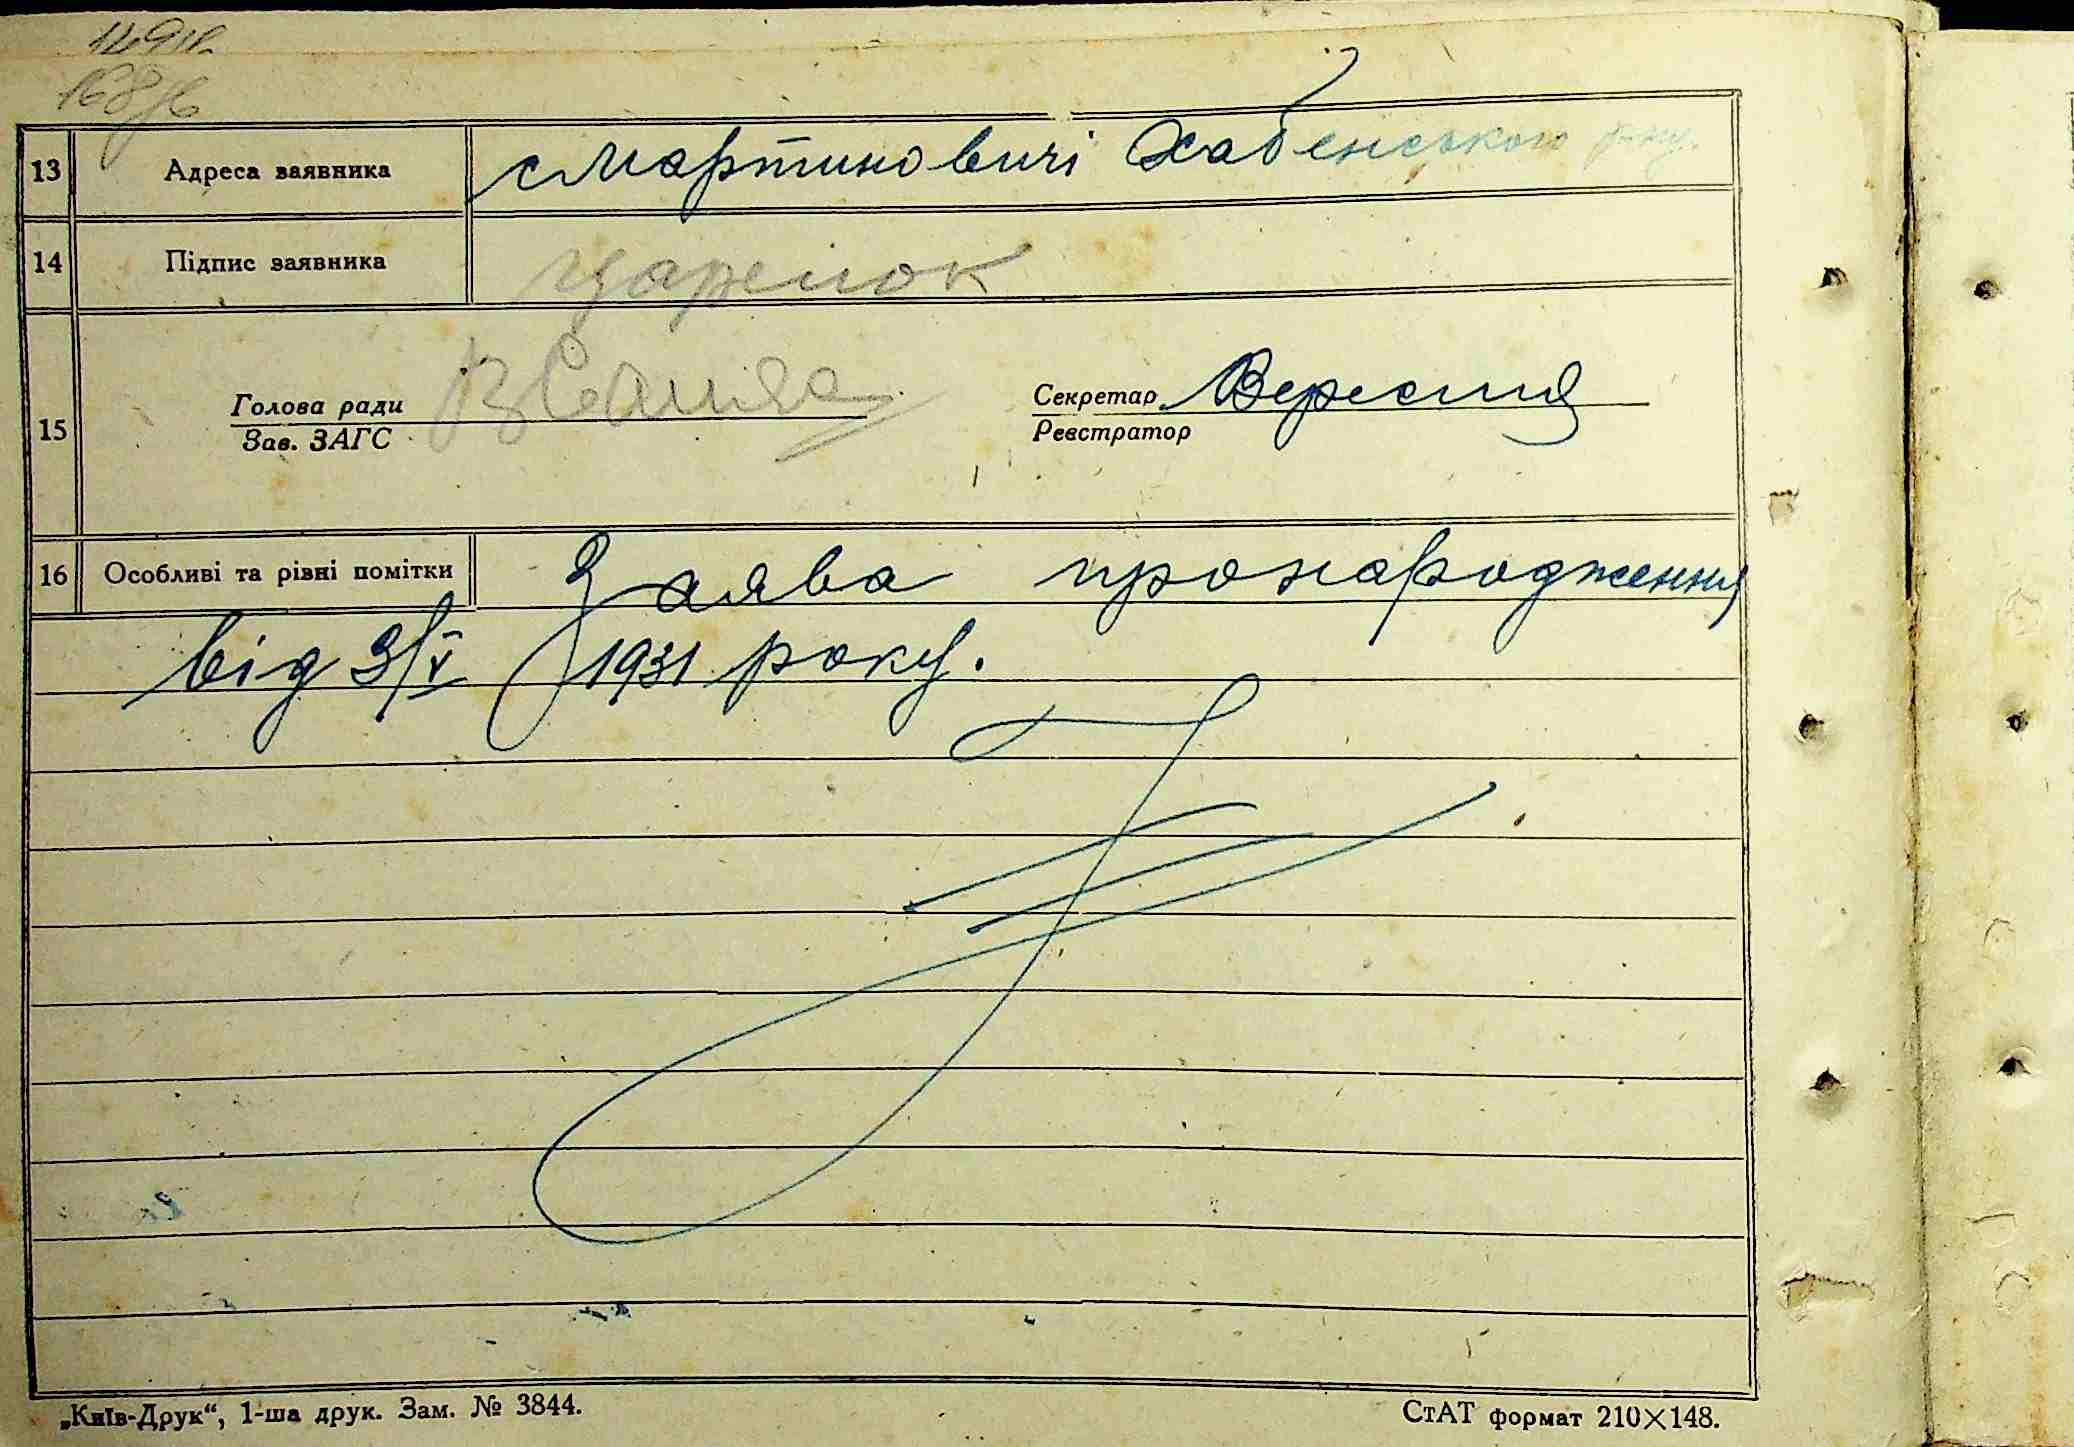 149 зв.
168 зв
13 Адреса заявника с Мартиновичі Хабенського р-ну.
14 Підпис заявника Царенок
Голова ради Секретар
15 Зав. ЗАГС Реєстратор
16 Особливі та рівні помітки Заява про народження
від 3/V 1931 року.
„Київ-Друк“, 1-ша друк. Зам. № 3844. СтАТ формат 210×148.